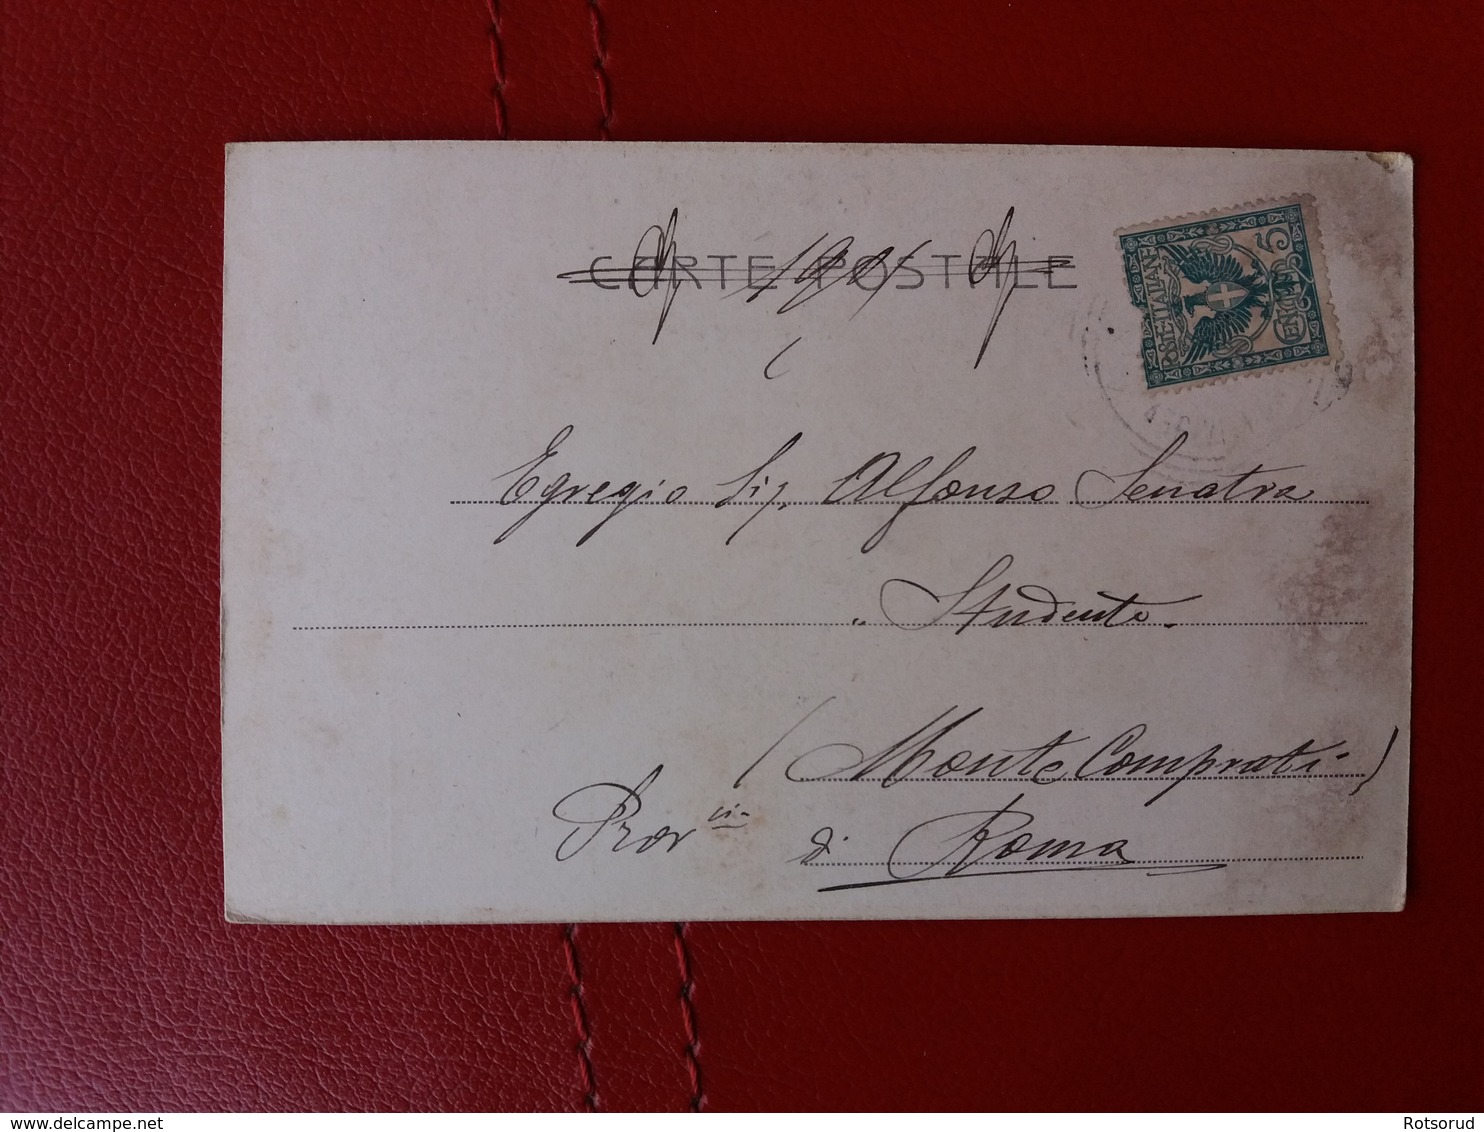 CARTE POSTALE
POSTE ITALIANE
CENT. 5
Egregio Sig. Alfonso Senatra
" Studente.
(Monte Comprati)
Prov cia di Roma
www.delcampe.net
Rotsorud